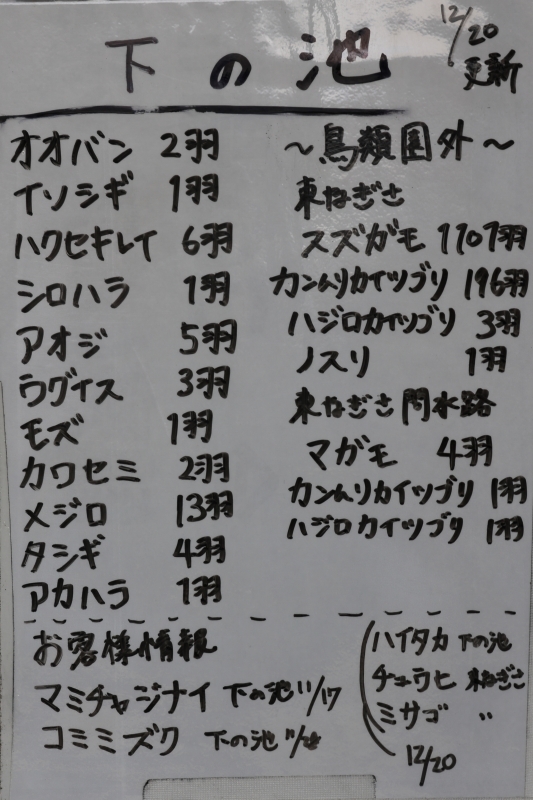 下の池
12/20
更新
オオバン 2羽
イソシギ 1羽
ハクセキレイ 6羽
シロハラ 1羽
アオジ 5羽
ウグイス 3羽
モズ 1羽
カワセミ 2羽
メジロ 13羽
タシギ 4羽
アカハラ 1羽
〜鳥類園外〜
東なぎさ
スズガモ 1107羽
カンムリカイツブリ 196羽
ハジロカイツブリ 3羽
ノスリ 1羽
東なぎさ間水路
マガモ 4羽
カンムリカイツブリ 1羽
ハジロカイツブリ 1羽
お客様情報
マミチャジナイ 下の池 11/17
コミミズク 下の池
ハイタカ 下の池
チュウヒ 東なぎさ
ミサゴ 〃
12/20